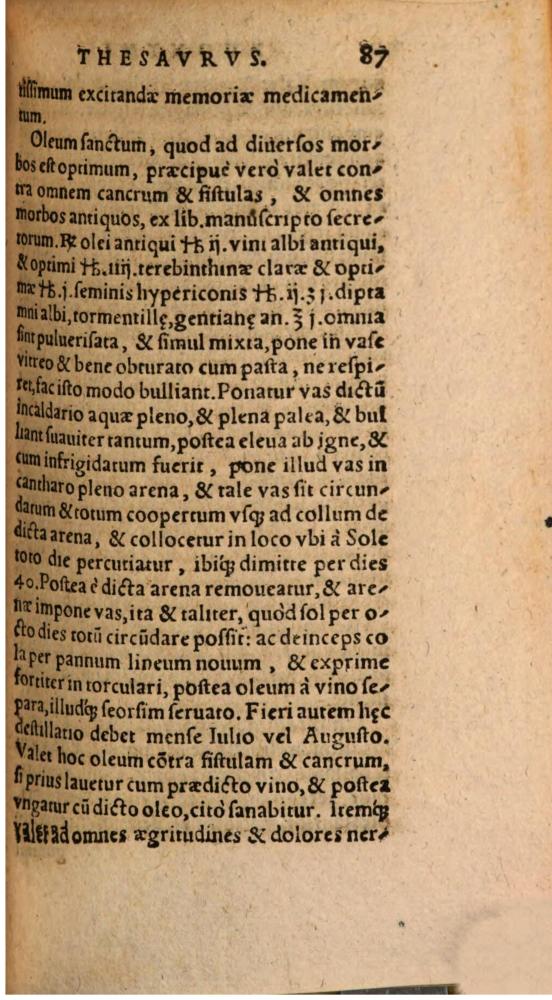 THESAVRVS. 87
tissimum excitandæ memoriæ medicamen-
tum.
Oleum sanctum, quod ad diuersos mor-
bos est optimum, præcipuè verò valet con-
tra omnem cancrum & fistulas, & omnes
morbos antiquos, ex lib. manuscripto secre-
torum. ℞ olei antiqui ℔ ij. vini albi antiqui,
& optimi ℔. iiij. terebinthinæ claræ & opti-
mæ ℔. j. seminis hypericonis ℔. ij. ʒ j. dipta
mni albi, tormentillę, gentianę an. ℥ j. omnia
sint puluerisata, & simul mixta, pone in vase
vitreo & bene obturato cum pasta, ne respi-
ret, fac isto modo bulliant. Ponatur vas dictū
in caldario aquæ pleno, & plena palea, & bul
liant suauiter tantum, postea eleua ab igne, &
cum infrigidatum fuerit, pone illud vas in
cantharo pleno arena, & tale vas sit circun-
datum & totum coopertum vsq; ad collum de
dicta arena, & collocetur in loco vbi à Sole
toto die percutiatur, ibiq; dimitte per dies
40. Postea è dicta arena remoueatur, & are-
næ impone vas, ita & taliter, quòd sol per o-
cto dies totū circūdare possit: ac deinceps co
la per pannum lineum nouum, & exprime
fortiter in torculari, postea oleum à vino se-
para, illudq; seorsim seruato. Fieri autem hęc
destillatio debet mense Iulio vel Augusto.
Valet hoc oleum cōtra fistulam & cancrum,
si prius lauetur cum prædicto vino, & postea
vngatur cū dicto oleo, citò sanabitur. Itemq;
valet ad omnes ægritudines & dolores ner-